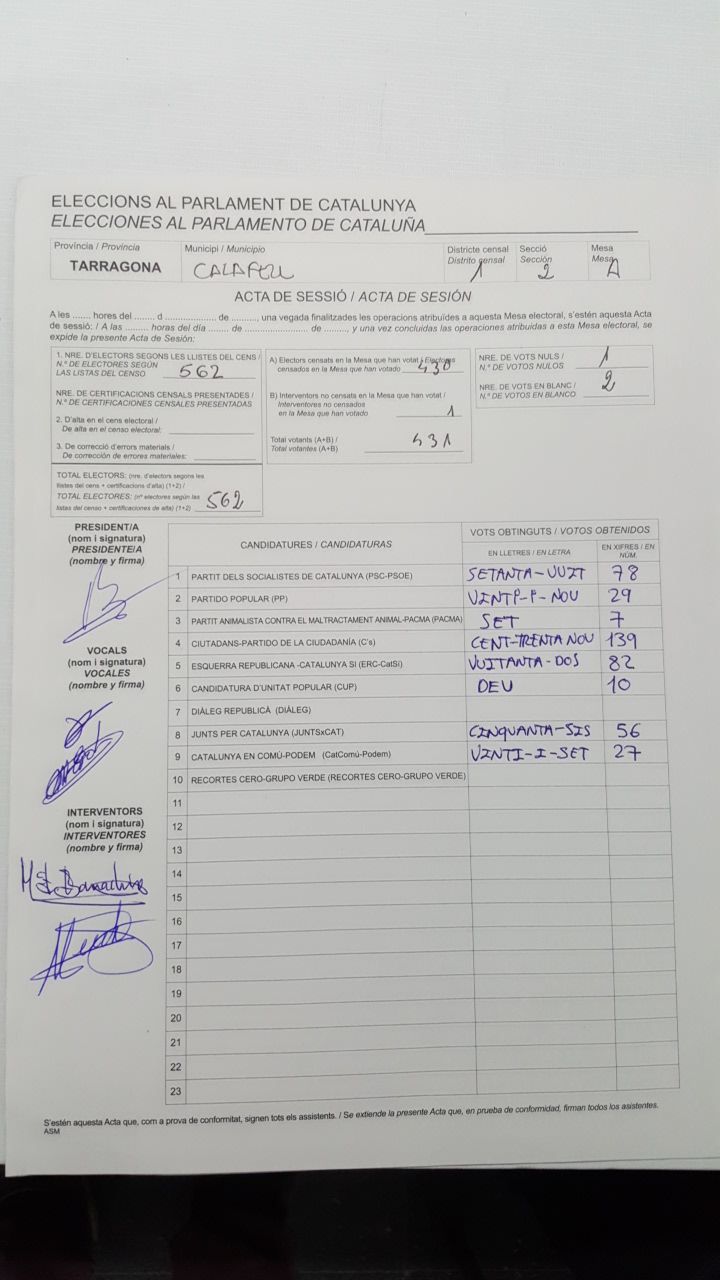 ELECCIONS AL PARLAMENT DE CATALUNYA
ELECCIONES AL PARLAMENTO DE CATALUÑA
Província / Provincia
TARRAGONA
Municipi / Municipio
CALAFELL
Districte censal
Distrito censal
1
Secció
Sección
2
Mesa
Mesa
A
ACTA DE SESSIÓ / ACTA DE SESIÓN
A les ....... hores del ....... d ..................... de .........., una vegada finalitzades les operacions atribuïdes a aquesta Mesa electoral, s'estén aquesta Acta
de sessió: / A las ......... horas del día ....... de ..................... de ........, y una vez concluidas las operaciones atribuidas a esta Mesa electoral, se
expide la presente Acta de Sesión:
1. NRE. D'ELECTORS SEGONS LES LLISTES DEL CENS /
N.º DE ELECTORES SEGÚN
LAS LISTAS DEL CENSO 562
NRE. DE CERTIFICACIONS CENSALS PRESENTADES /
N.º DE CERTIFICACIONES CENSALES PRESENTADAS
2. D'alta en el cens electoral /
De alta en el censo electoral:
3. De correcció d'errors materials /
De corrección de errores materiales:
TOTAL ELECTORS: (nre. d'electors segons les
llistes del cens + certificacions d'alta) (1+2) /
TOTAL ELECTORES: (nº electores según las
listas del censo + certificaciones de alta) (1+2) 562
A) Electors censats en la Mesa que han votat / Electores
censados en la Mesa que han votado 430
B) Interventors no censats en la Mesa que han votat /
Interventores no censados
en la Mesa que han votado 1
Total votants (A+B) /
Total votantes (A+B) 431
NRE. DE VOTS NULS /
N.º DE VOTOS NULOS 1
NRE. DE VOTS EN BLANC /
N.º DE VOTOS EN BLANCO 2
PRESIDENT/A
(nom i signatura)
PRESIDENTE/A
(nombre y firma)
VOCALS
(nom i signatura)
VOCALES
(nombre y firma)
INTERVENTORS
(nom i signatura)
INTERVENTORES
(nombre y firma)
CANDIDATURES / CANDIDATURAS
VOTS OBTINGUTS / VOTOS OBTENIDOS
EN LLETRES / EN LETRA
EN XIFRES / EN NÚM.
1 PARTIT DELS SOCIALISTES DE CATALUNYA (PSC-PSOE) SETANTA-VUIT 78
2 PARTIDO POPULAR (PP) VINT-I-NOU 29
3 PARTIT ANIMALISTA CONTRA EL MALTRACTAMENT ANIMAL-PACMA (PACMA) SET 7
4 CIUTADANS-PARTIDO DE LA CIUDADANÍA (C's) CENT-TRENTA NOU 139
5 ESQUERRA REPUBLICANA -CATALUNYA SÍ (ERC-CatSí) VUITANTA-DOS 82
6 CANDIDATURA D'UNITAT POPULAR (CUP) DEU 10
7 DIÀLEG REPUBLICÀ (DIÀLEG)
8 JUNTS PER CATALUNYA (JUNTSxCAT) CINQUANTA-SIS 56
9 CATALUNYA EN COMÚ-PODEM (CatComú-Podem) VINTI-I-SET 27
10 RECORTES CERO-GRUPO VERDE (RECORTES CERO-GRUPO VERDE)
11
12
13
14
15
16
17
18
19
20
21
22
23
S'estén aquesta Acta que, com a prova de conformitat, signen tots els assistents. / Se extiende la presente Acta que, en prueba de conformidad, firman todos los asistentes.
ASM